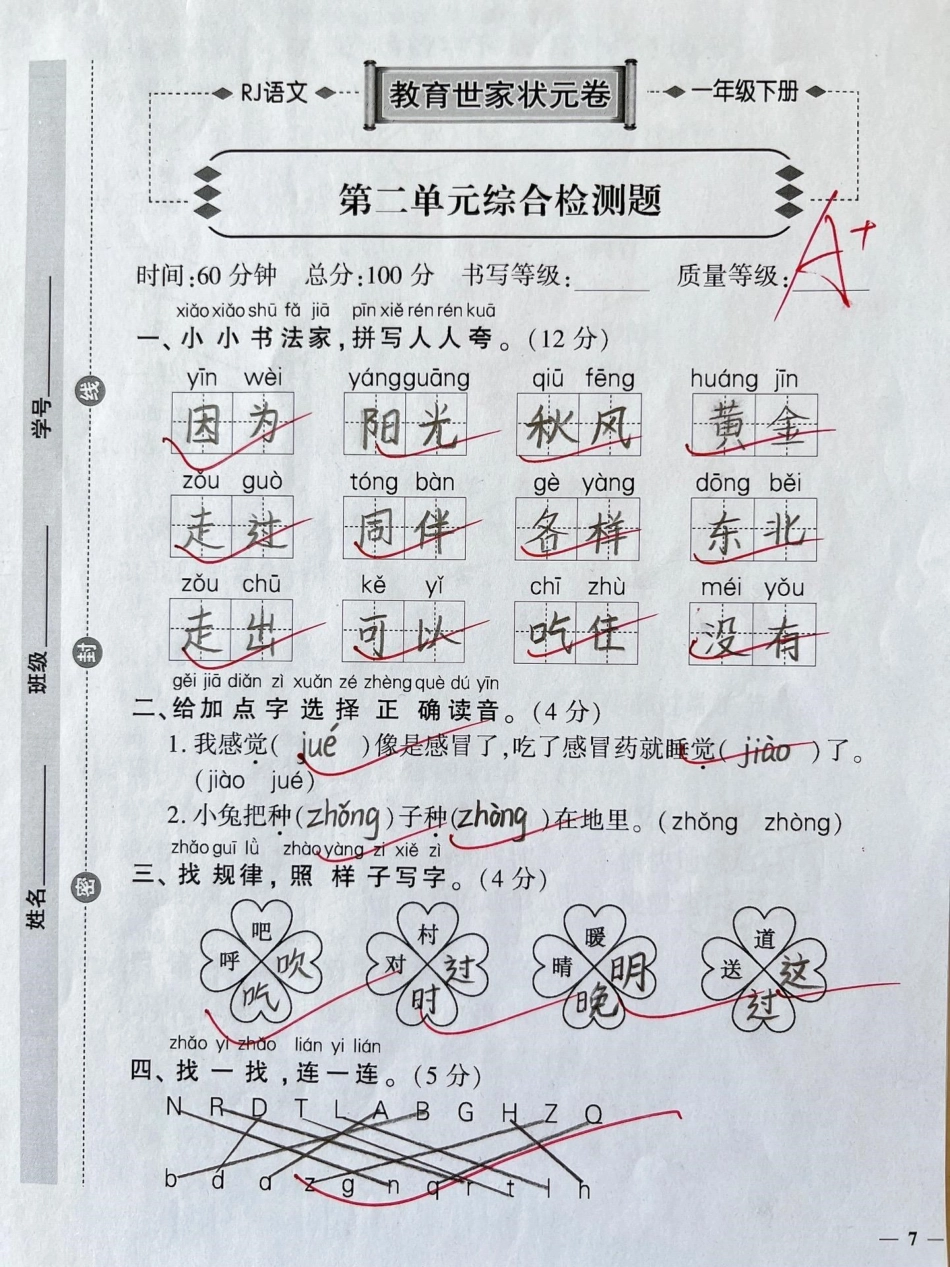 RJ语文 教育世家状元卷 一年级下册
第二单元综合检测题
A+
时间:60分钟 总分:100分 书写等级:______ 质量等级:______
xiǎo xiǎo shū fǎ jiā pīn xiě rén rén kuā
一、小小书法家,拼写人人夸。(12分)
yīn wèi yángguāng qiū fēng huáng jīn
因为 阳光 秋风 黄金
zǒu guò tóng bàn gè yàng dōng běi
走过 同伴 各样 东北
zǒu chū kě yǐ chī zhù méi yǒu
走出 可以 吃住 没有
gěi jiā diǎn zì xuǎn zé zhèng què dú yīn
二、给加点字选择正确读音。(4分)
1. 我感觉( jué )像是感冒了,吃了感冒药就睡觉( jiào )了。
(jiào jué)
2. 小兔把种(zhǒng)子种(zhòng)在地里。(zhǒng zhòng)
zhǎo guī lǜ zhào yàng zi xiě zì
三、找规律,照样子写字。(4分)
吧 村 暖 道
呼 吹 对 过 晴 明 送 这
吃 时 晚 过
zhǎo yi zhǎo lián yi lián
四、找一找,连一连。(5分)
N R D T L A B G H Z Q
b d a z g n q r t l h
— 7 —
学号
班级
姓名
线
封
密